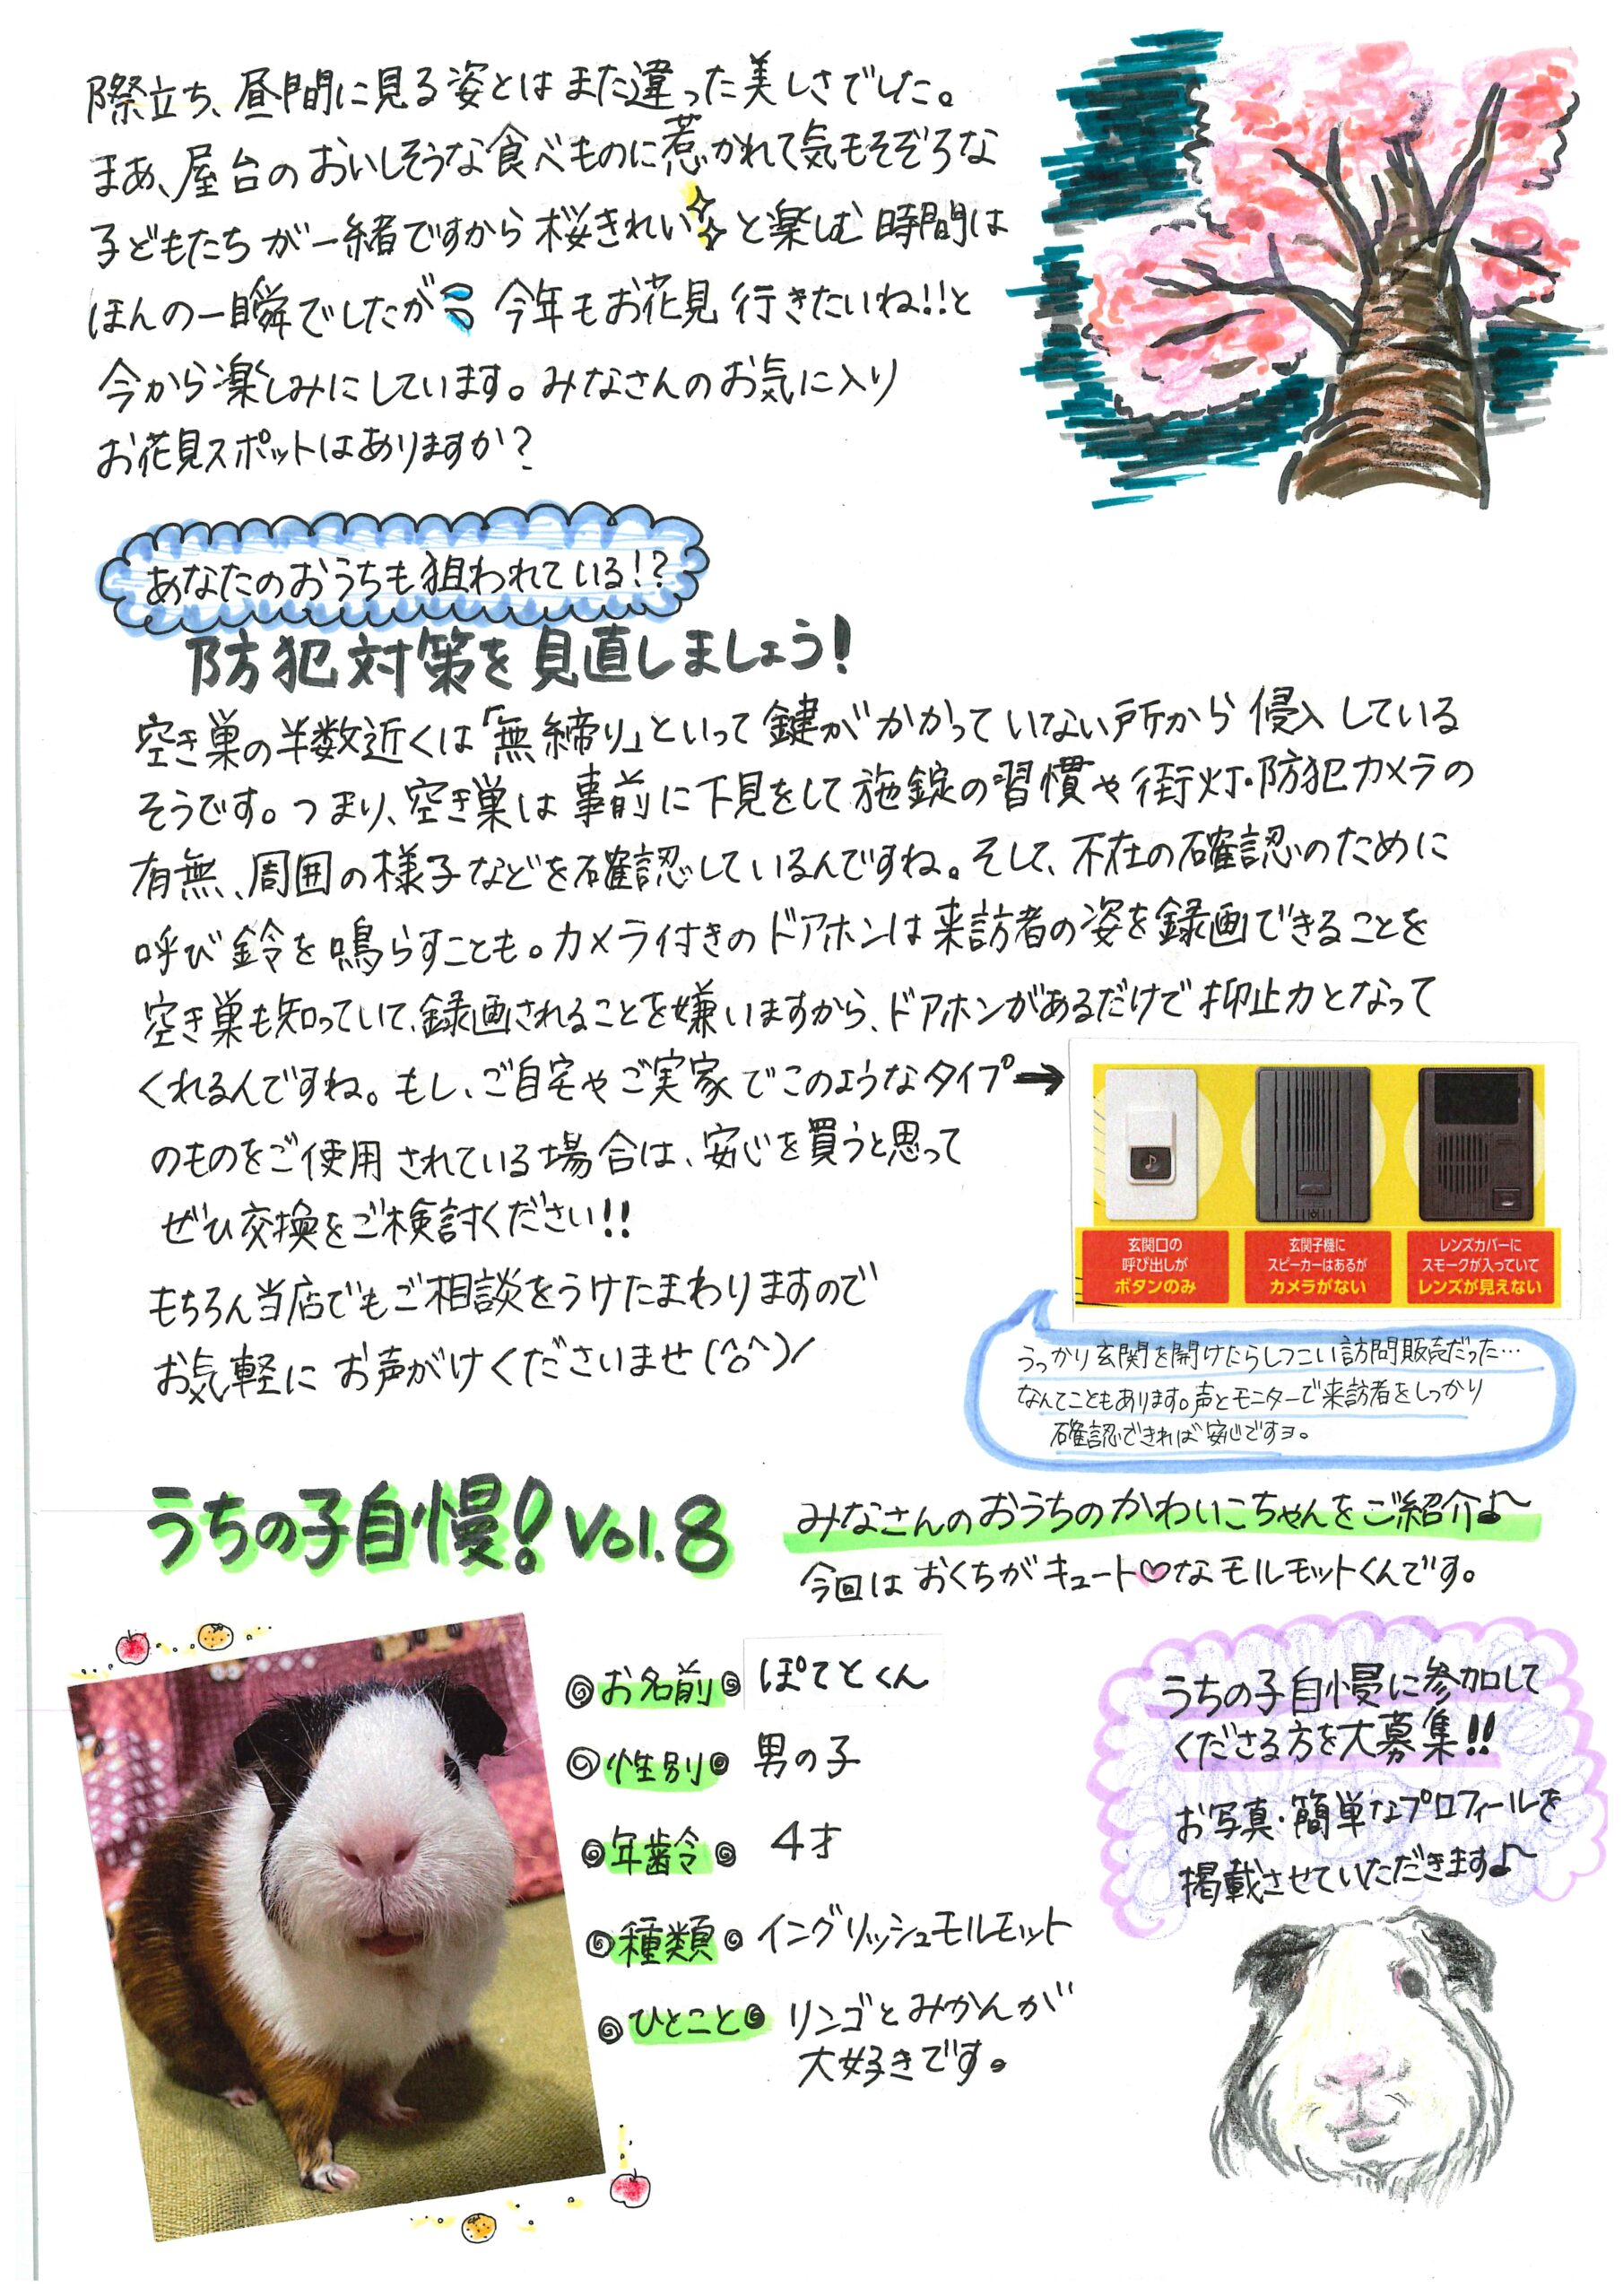 際立ち、昼間に見る姿とはまた違った美しさでした。
まあ、屋台のおいしそうな食べものに惹かれて気もそぞろな
子どもたちが一緒ですから桜きれい✨と楽しむ時間は
ほんの一瞬でしたが💦今年もお花見行きたいね!!と
今から楽しみにしています。みなさんのお気に入り
お花見スポットはありますか?
あなたのおうちも狙われている!?
防犯対策を見直しましょう!
空き巣の半数近くは「無締り」といって鍵がかかっていない戸所から侵入している
そうです。つまり、空き巣は事前に下見をして施錠の習慣や街灯・防犯カメラの
有無、周囲の様子などを確認しているんですね。そして、不在の確認のために
呼び鈴を鳴らすことも。カメラ付きのドアホンは来訪者の姿を録画できることを
空き巣も知っていて、録画されることを嫌いますから、ドアホンがあるだけで抑止力となって
くれるんですね。もし、ご自宅やご実家でこのようなタイプ→
のものをご使用されている場合は、安心を買うと思って
ぜひ交換をご検討ください!!
もちろん当店でもご相談をうけたまわりますので
お気軽にお声がけくださいませ(^o^)/
玄関口の
呼び出しが
ボタンのみ
玄関子機に
スピーカーはあるが
カメラがない
レンズカバーに
スモークが入っていて
レンズが見えない
うっかり玄関を開けたらしつこい訪問販売だった…
なんてこともあります。声とモニターで来訪者をしっかり
確認できれば安心ですヨ。
うちの子自慢! Vol.8
みなさんのおうちのかわいこちゃんをご紹介♪
今回はおくちがキュート♡なモルモットくんです。
◎お名前◎ ぽてとくん
◎性別◎ 男の子
◎年齢◎ 4才
◎種類◎ イングリッシュモルモット
◎ひとこと◎ リンゴとみかんが
大好きです。
うちの子自慢に参加して
くださる方を大募集!!
お写真・簡単なプロフィールを
掲載させていただきます♪